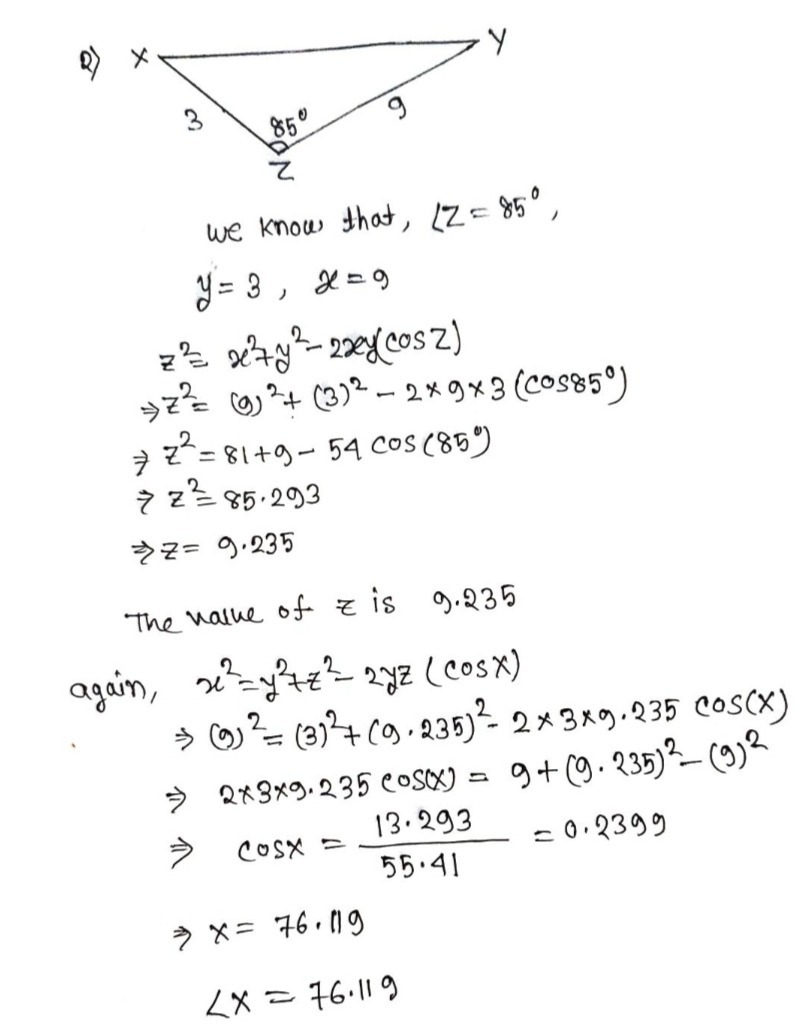 2) X Y
3 85° 9
Z
we know that, ∠Z = 85°,
y = 3 , x = 9
z² = x²+y²- 2xy(cos Z)
⇒ z² = (9)²+ (3)² - 2×9×3 (cos85°)
⇒ z² = 81+9 - 54 cos (85°)
⇒ z² = 85.293
⇒ z = 9.235
The value of z is 9.235
again, x² = y²+z² - 2yz (cosX)
⇒ (9)² = (3)²+ (9.235)² - 2×3×9.235 cos(X)
⇒ 2×3×9.235 cos(X) = 9+ (9.235)² - (9)²
⇒ cosX = 13.293/55.41 = 0.2399
⇒ X = 76.119
∠X = 76.119